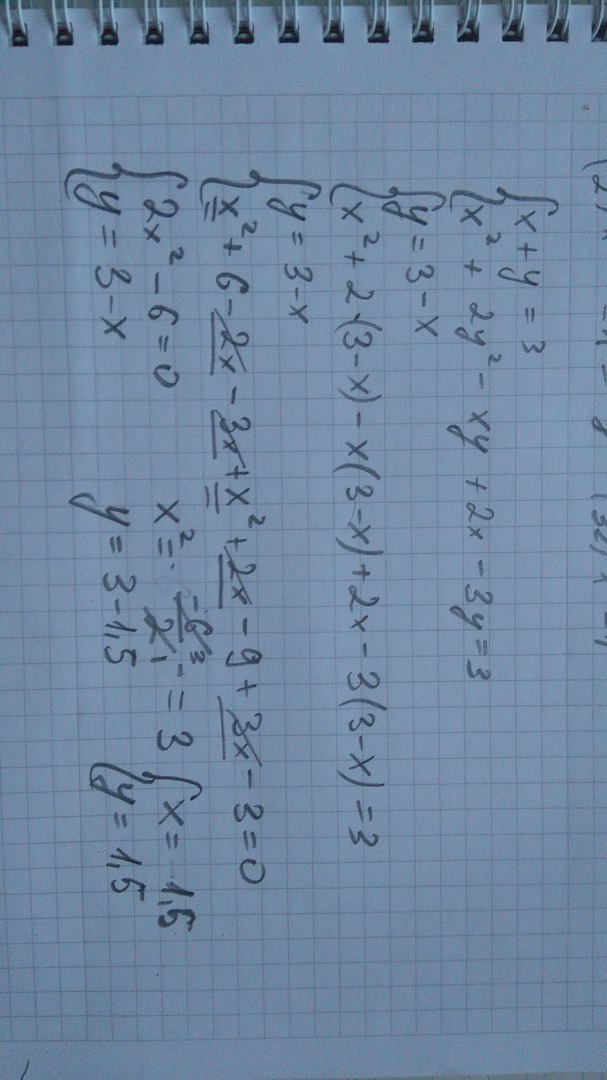 x + y = 3
x² + 2y² - xy + 2x - 3y = 3
y = 3 - x
x² + 2·(3-x) - x(3-x) + 2x - 3(3-x) = 3
y = 3 - x
x² + 6 - 2x - 3x + x² + 2x - 9 + 3x - 3 = 0
2x² - 6 = 0 x² = -6/2 = 3 x = 1,5
y = 3 - x y = 3 - 1,5 y = 1,5